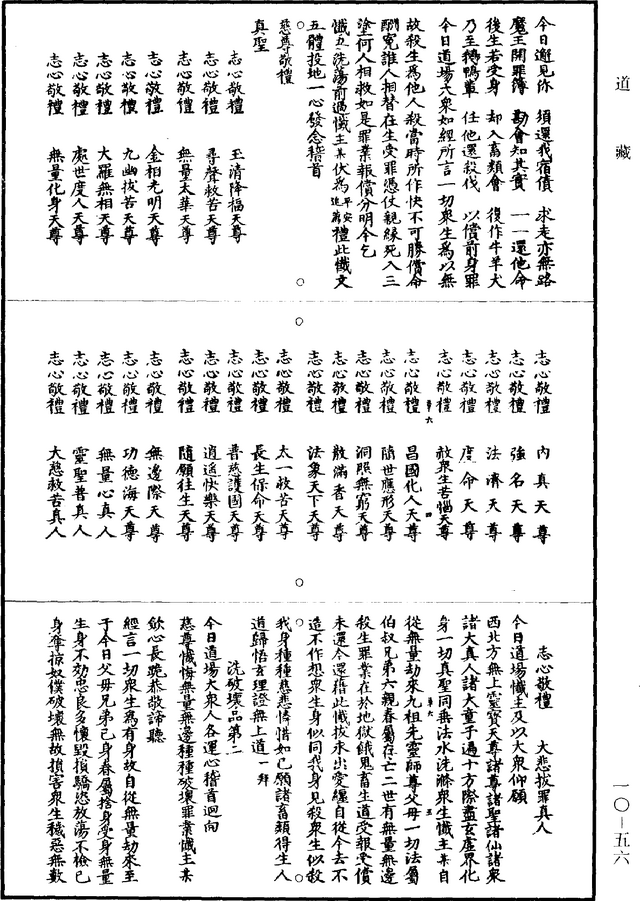 道藏
今日邂見你　須還我宿債　求走亦無路
魔王開罪簿　勘會知其實　一一還他命
後生若受身　却入畜類會　復作牛羊犬
乃至鵝鴨輩　任他還殺伐　以償前身罪
今日道場大衆如經所言一切衆生爲以無
故殺生爲他人殺當時所作快不可勝償命
酬寃誰人相替在生受罪憑仗親緣死入三
塗何人相救如是罪業報償分明今乞
懺五洗蕩前過懺主某伏爲早安遠薦禮此懺文
五體投地一心發念稽首
慈尊敬禮
真聖
志心敬禮　玉清降福天尊
志心敬禮　尋聲救苦天尊
志心敬禮　無量太華天尊
志心敬禮　金相光明天尊
志心敬禮　九幽拔苦天尊
志心敬禮　大羅無相天尊
志心敬禮　處世度人天尊
志心敬禮　無量化身天尊
志心敬禮　內真天尊
志心敬禮　強名天尊
志心敬禮　法濟天尊
志心敬禮　度命天尊
志心敬禮　救衆生苦惱天尊
志心敬禮　昌國化人天尊
志心敬禮　隨世應形天尊
志心敬禮　洞照無窮天尊
志心敬禮　散滿香天尊
志心敬禮　法象天下天尊
志心敬禮　太一救苦天尊
志心敬禮　長生保命天尊
志心敬禮　普慈護國天尊
志心敬禮　逍遙快樂天尊
志心敬禮　隨願往生天尊
志心敬禮　無邊際天尊
志心敬禮　功德海天尊
志心敬禮　無量心真人
志心敬禮　靈聖普真人
志心敬禮　大慈救苦真人
志心敬禮　大悲拔罪真人
今日道場懺主及以大衆仰願
西北方無上靈寶天尊諸尊諸聖諸仙諸衆
諸大真人諸大童子過十方際盡玄虛界化
身一切真聖同無法水洗滌衆生懺主某自
從無量劫來九祖先靈師尊父母一切法屬
伯叔兄弟六親眷屬存亡二世有無量無邊
殺生罪業在於地獄餓鬼畜生道受報受償
未還今還稽此懺拔永出愛纏自從今去不
造不作想衆生身似同我身見殺衆生似殺
我身種種慈悲憐惜如己願諸畜類得生人
道歸悟玄理證無上道一拜
洗破壞品第二
今日道場大衆人各運心稽首迴向
慈尊懺悔無量無邊種種破壞罪業懺主某
飲心長跪恭敬諦聽
經言一切衆生爲有身故自從無量劫來至
于今日父母兄弟己身眷屬捨身受身無量
生身不効忠良多懷毀損驕恣放蕩不檢己
身奪掠奴僕破壞無故損害衆生穢惡無數
一〇—五六